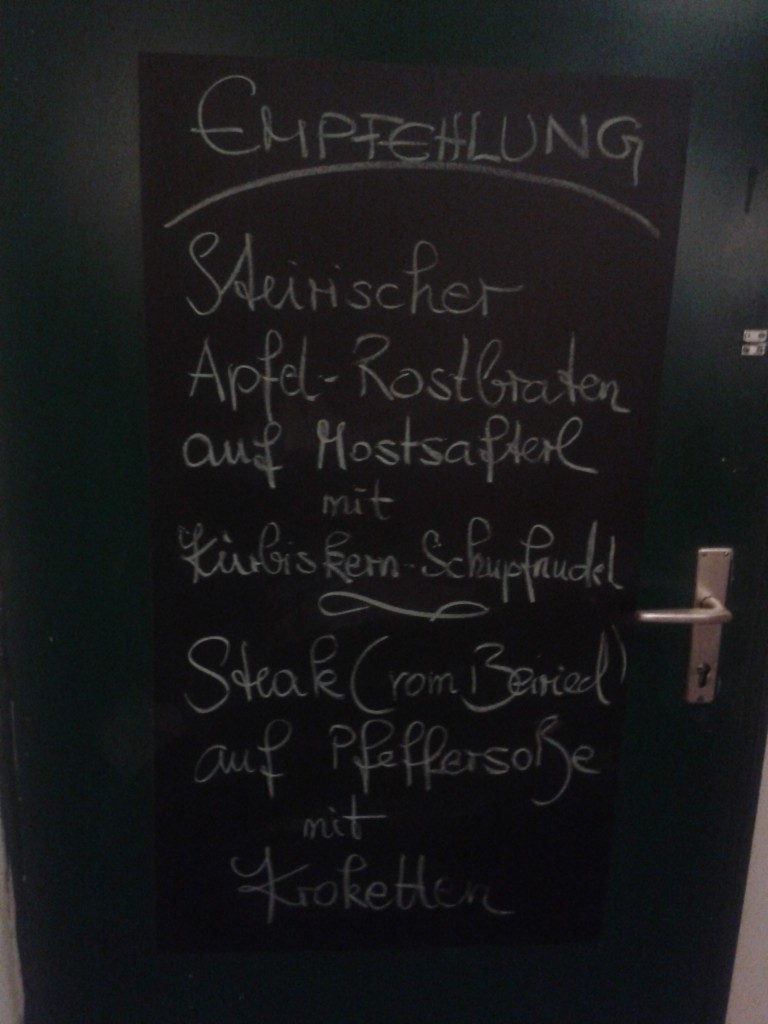 EMPFEHLUNG
Steirischer
Apfel-Rostbraten
auf Mostsafterl
mit
Kürbiskern-Schupfnudel
Steak (vom Beiried)
auf Pfeffersoße
mit
Kroketten